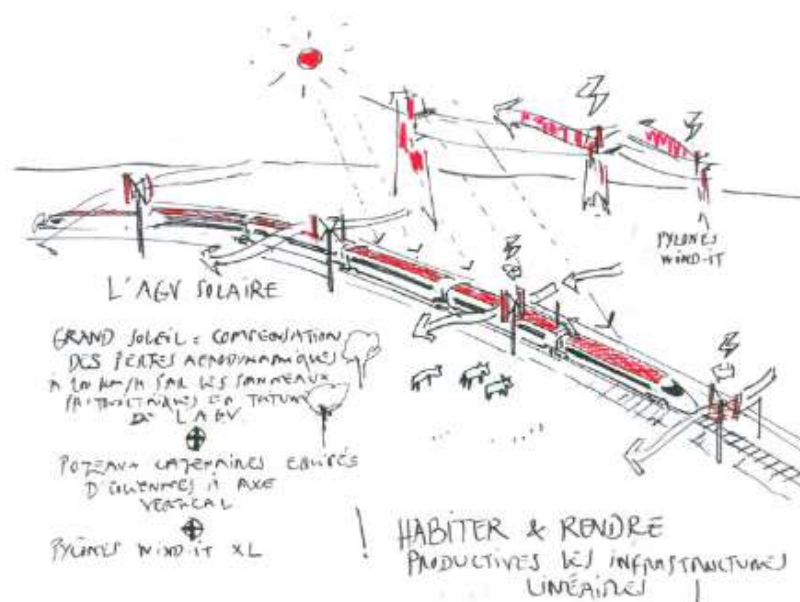 PYLONES
WIND-IT
L'AGV SOLAIRE
GRAND SOLEIL = COMPENSATION
DES PERTES AERODYNAMIQUES
À KM/H PAR LES PANNEAUX
PHOTOVOLTAIQUES EN TOITURE
DE L'AGV
POTEAUX CATENAIRES EQUIPÉS
D'EOLIENNES À AXE
VERTICAL
PYLÔNES WIND-IT XL
! HABITER & RENDRE
PRODUCTIVES LES INFRASTRUCTURES
LINÉAIRES !